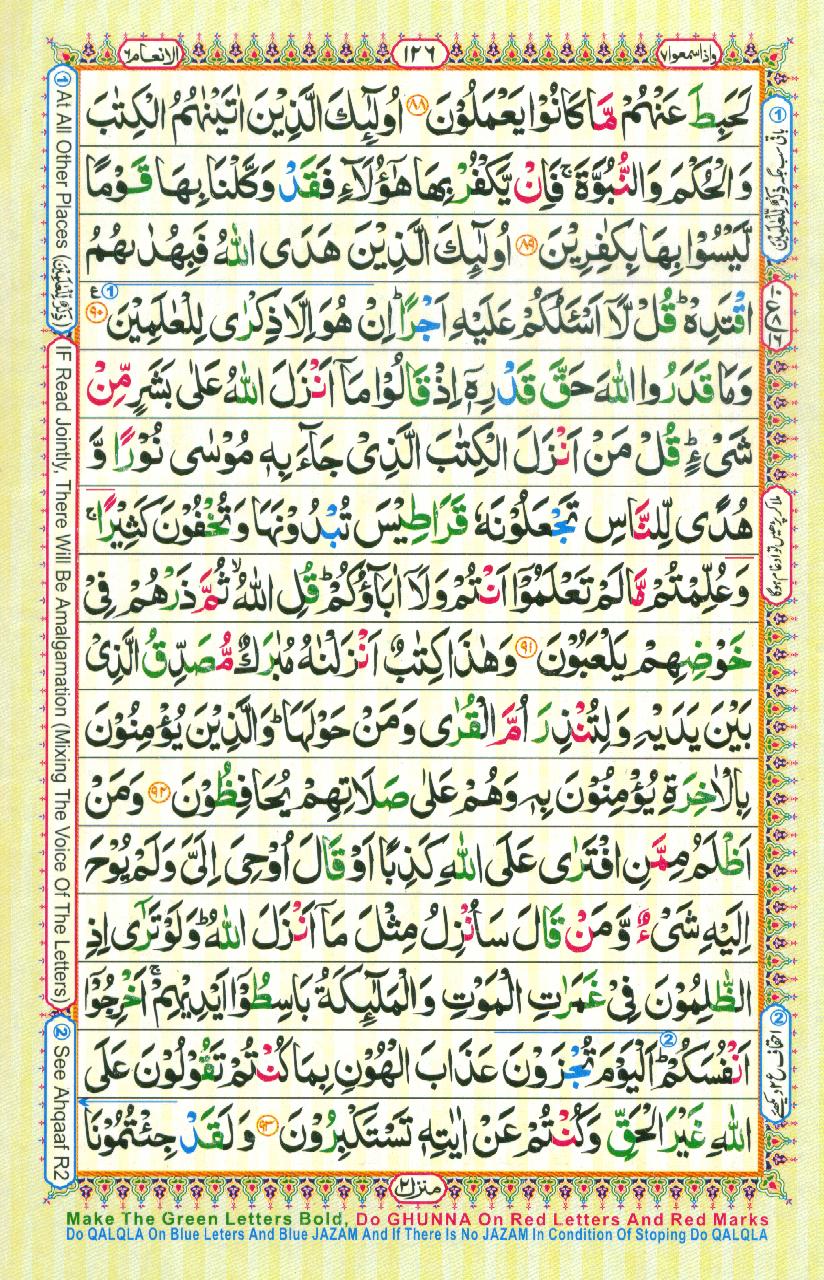 الانعام ٦
١٢٦
واذا سمعوا ٧
لَحَبِطَ عَنْهُمْ مَّا كَانُوْا يَعْمَلُوْنَ ٨٨ اُولٰٓئِكَ الَّذِيْنَ اٰتَيْنٰهُمُ الْكِتٰبَ
وَالْحُكْمَ وَالنُّبُوَّةَ ۚ فَاِنْ يَّكْفُرْ بِهَا هٰٓؤُلَآءِ فَقَدْ وَكَّلْنَا بِهَا قَوْمًا
لَّيْسُوْا بِهَا بِكٰفِرِيْنَ ٨٩ اُولٰٓئِكَ الَّذِيْنَ هَدَى اللّٰهُ فَبِهُدٰىهُمُ
اقْتَدِهْ ؕ قُلْ لَّاۤ اَسْـَٔلُكُمْ عَلَيْهِ اَجْرًا ؕ اِنْ هُوَ اِلَّا ذِكْرٰى لِلْعٰلَمِيْنَ ٩٠ ع ①
وَمَا قَدَرُوا اللّٰهَ حَقَّ قَدْرِهٖۤ اِذْ قَالُوْا مَاۤ اَنْزَلَ اللّٰهُ عَلٰى بَشَرٍ مِّنْ
شَیْءٍ ؕ قُلْ مَنْ اَنْزَلَ الْكِتٰبَ الَّذِیْ جَآءَ بِهٖ مُوْسٰى نُوْرًا وَّ
هُدًى لِّلنَّاسِ تَجْعَلُوْنَهٗ قَرَاطِيْسَ تُبْدُوْنَهَا وَتُخْفُوْنَ كَثِيْرًا ۚ
وَعُلِّمْتُمْ مَّا لَمْ تَعْلَمُوْۤا اَنْتُمْ وَلَاۤ اٰبَآؤُكُمْ ؕ قُلِ اللّٰهُ ۙ ثُمَّ ذَرْهُمْ فِیْ
خَوْضِهِمْ يَلْعَبُوْنَ ٩١ وَهٰذَا كِتٰبٌ اَنْزَلْنٰهُ مُبٰرَكٌ مُّصَدِّقُ الَّذِیْ
بَيْنَ يَدَيْهِ وَلِتُنْذِرَ اُمَّ الْقُرٰى وَمَنْ حَوْلَهَا ؕ وَالَّذِيْنَ يُؤْمِنُوْنَ
بِالْاٰخِرَةِ يُؤْمِنُوْنَ بِهٖ وَهُمْ عَلٰى صَلَاتِهِمْ يُحَافِظُوْنَ ٩٢ وَمَنْ
اَظْلَمُ مِمَّنِ افْتَرٰى عَلَى اللّٰهِ كَذِبًا اَوْ قَالَ اُوْحِیَ اِلَیَّ وَلَمْ يُوْحَ
اِلَيْهِ شَیْءٌ وَّمَنْ قَالَ سَاُنْزِلُ مِثْلَ مَاۤ اَنْزَلَ اللّٰهُ ؕ وَلَوْ تَرٰۤى اِذِ
الظّٰلِمُوْنَ فِیْ غَمَرٰتِ الْمَوْتِ وَالْمَلٰٓئِكَةُ بَاسِطُوْۤا اَيْدِيْهِمْ ۚ اَخْرِجُوْۤا
اَنْفُسَكُمْ ؕ اَلْيَوْمَ تُجْزَوْنَ عَذَابَ الْهُوْنِ بِمَا كُنْتُمْ تَقُوْلُوْنَ عَلَى ②
اللّٰهِ غَيْرَ الْحَقِّ وَكُنْتُمْ عَنْ اٰيٰتِهٖ تَسْتَكْبِرُوْنَ ٩٣ وَلَقَدْ جِئْتُمُوْنَا
منزل ٢
① At All Other Places (ذِكْرٌ لِّلْعٰلَمِيْنَ)
IF Read Jointly, There Will Be Amalgamation (Mixing The Voice Of The Letters)
② See Ahqaaf R2
Make The Green Letters Bold, Do GHUNNA On Red Letters And Red Marks
Do QALQLA On Blue Leters And Blue JAZAM And If There Is No JAZAM In Condition Of Stoping Do QALQLA